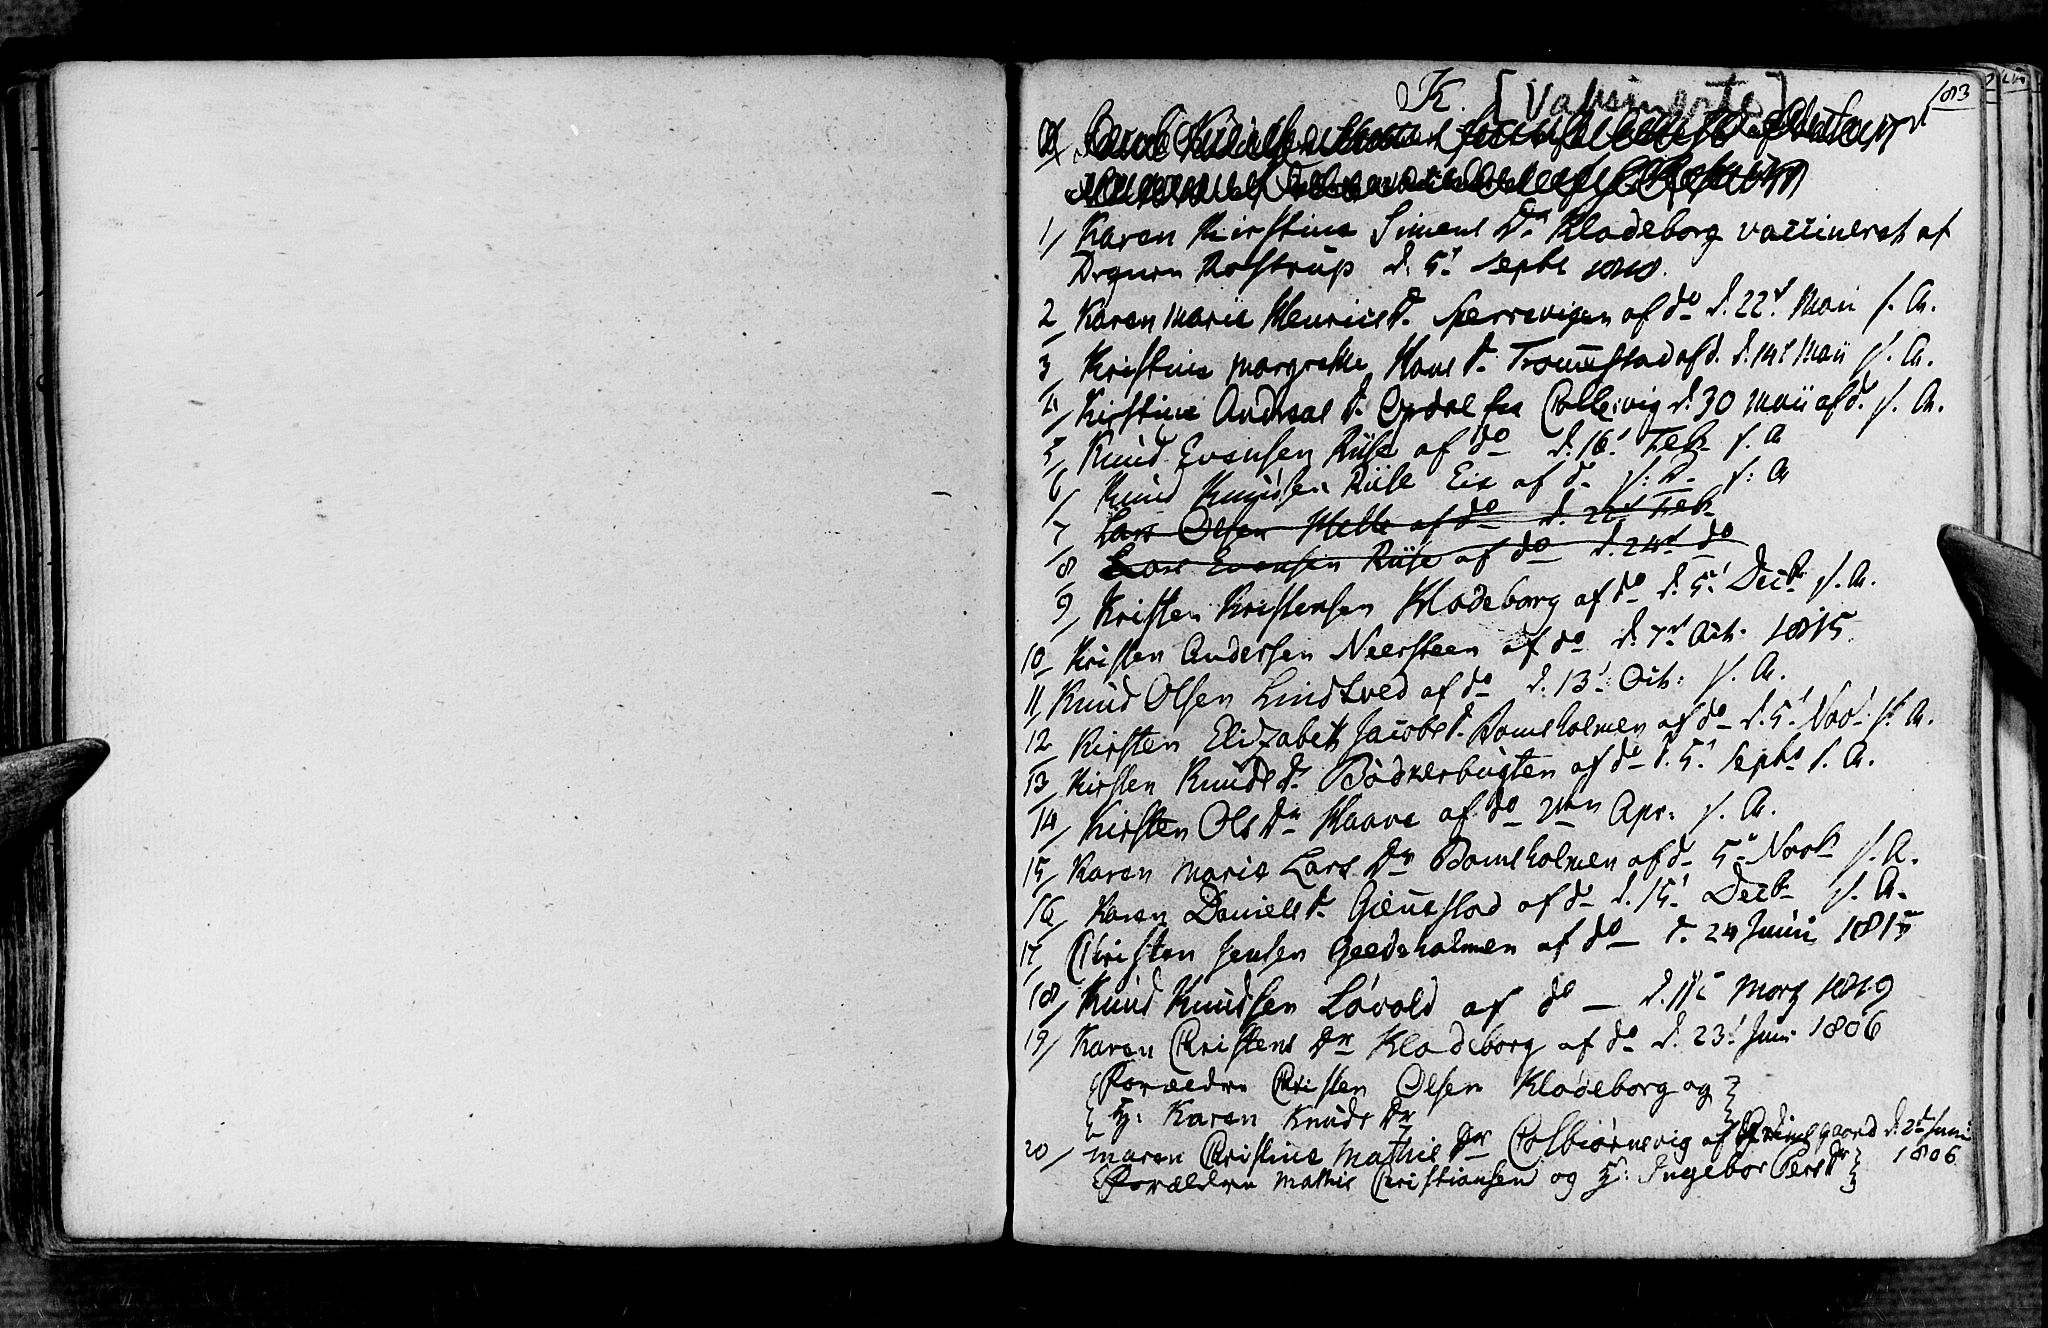 K. [Vaksinerte]
183
1/ Karen Kirstine Simens Dr Kladeborg vaccineret af
Degnen Rostrup d. 5t Septb 1810.
2/ Karen Marie Henricsd. Sperrevigen af do d. 22d Maii s. A.
3 Kristine Margrethe Hans d. Tromestad af d. d. 14d Maii s. A.
4/ Kirstine Andreas d. Opdal fra Colb:vig d. 30 Maii af d. s. A.
5/ Knud Evensen Riise af do d. 16t Feb s. A
6/ Knud Knudsen Riise Eie af d. s: D. s: A
7 Lars Olsen Helle af do d. 22d Feb
8 Lars Evensen Riise af do d. 24d do
9/ Kristen Kristensen Kladeborg af do d. 5t Decb s. A.
10 Kristen Andersen Neersteen af do d. 7d Oct. 1815.
11/ Knud Olsen Lindtved af do d. 13t Oct: s. A.
12 Kirsten Elizabeth Jacobs d. Bomsholmen af do d. 5t Novb s. A.
13/ Kirsten Knuds d. Bödkerbugten af do d. 5t Septb s. A.
14/ Kirsten Ols Dr Haave af do Apr: s. A.
15/ Karen Marie Lars Dr Bomsholmen af d. 5 Novb s. A.
16/ Karen Daniels d. Gienestad af d. d. 15t Decb s. A.
17/ Christen Jensen Geedeholmen af do d. 24 Junii 1815
18/ Knud Knudsen Lövold af do d. 11t Marz 1819
19/ Karen Christens Dr Kladeborg af do d. 23d Juni 1806
Forældre Christen Olsen Kladeborg og
H: Karen Knuds Dr
20/ Maren Christine Mathis Dr Colbiørnsvig af Grimsgaard d. 2d Juni
Forældre Mathis Christiansen og H: Ingebor Pers Dr 1806